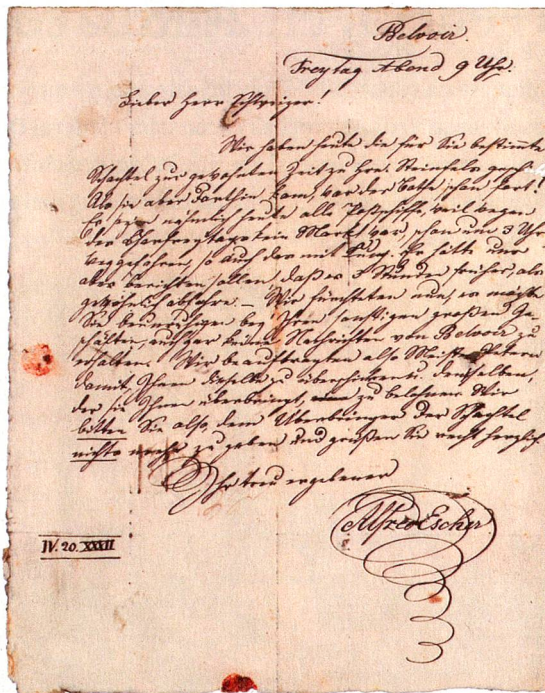 Belvoir.
Freytag Abend 9 Uhr.
Lieber Herr Schweizer!
Wir haben heute die für Sie bestimmte
Schachtel zur gewohnten Zeit zu Hrn. Steinfels geschickt.
Als sie aber dorthin kam, war der Botte schon fort!
Es seyen nähmlich heute alle Postschiffe, weil wegen
des Charfreytags kein Markt war, schon um 3 Uhr
weggefahren, so auch das mit Er hätte uns
aber berichten sollen, daß er 3 Stunden früher, als
gewöhnlich abfahre. – Wir fürchteten nun, es möchte
Sie beunruhigen bey Ihren sonstigen großen Ge-
schäften, auch gar keine Nachrichten von Belvoir zu
erhalten. Wir beauftragten also Meister
damit, Ihnen dieselbe zu überschicken u. denselben,
der sie Ihnen überbringt, zu belohnen. Wir
bitten Sie also, dem Überbringer der Schachtel
nichts mehr zu geben und grüßen Sie recht herzlich
Ihr treu ergebener
Alfred Escher
IV. 20. XXXII